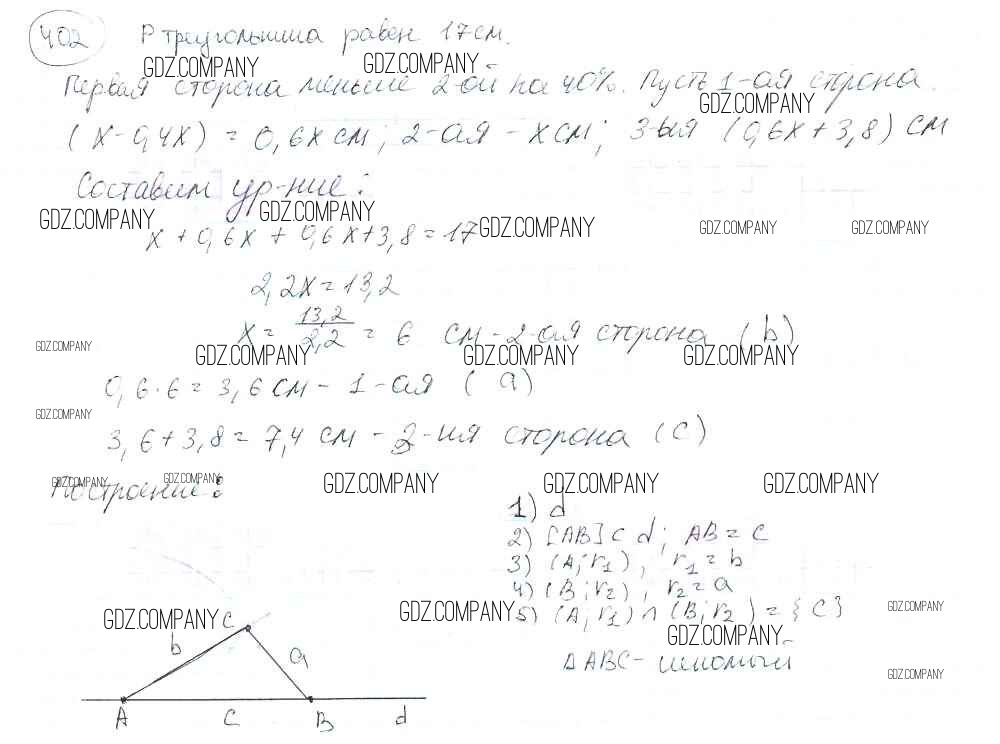 402 P треугольника равен 17 см.
GDZ.COMPANY GDZ.COMPANY
Первая сторона меньше 2-ой на 40%. Пусть 1-ая сторона
GDZ.COMPANY
(x-0,4x) = 0,6x см; 2-ая - x см; 3-ья (0,6x+3,8) см
Составим ур-ние:
GDZ.COMPANY GDZ.COMPANY GDZ.COMPANY GDZ.COMPANY GDZ.COMPANY
x + 0,6x + 0,6x+3,8 = 17
2,2x = 13,2
x = 13,2/2,2 = 6 см - 2-ая сторона (b)
GDZ.COMPANY GDZ.COMPANY GDZ.COMPANY GDZ.COMPANY
0,6·6 = 3,6 см - 1-ая (a)
GDZ.COMPANY
3,6+3,8 = 7,4 см - 3-ия сторона (c)
Построение:
GDZ.COMPANY GDZ.COMPANY GDZ.COMPANY GDZ.COMPANY GDZ.COMPANY
1) d
2) [AB] ⊂ d; AB = c
3) (A; r₁), r₁ = b
4) (B; r₂), r₂ = a
5) (A; r₁) ∩ (B; r₂) = {C}
GDZ.COMPANY GDZ.COMPANY GDZ.COMPANY GDZ.COMPANY
△ABC - искомый
GDZ.COMPANY
C
b a
A c B d